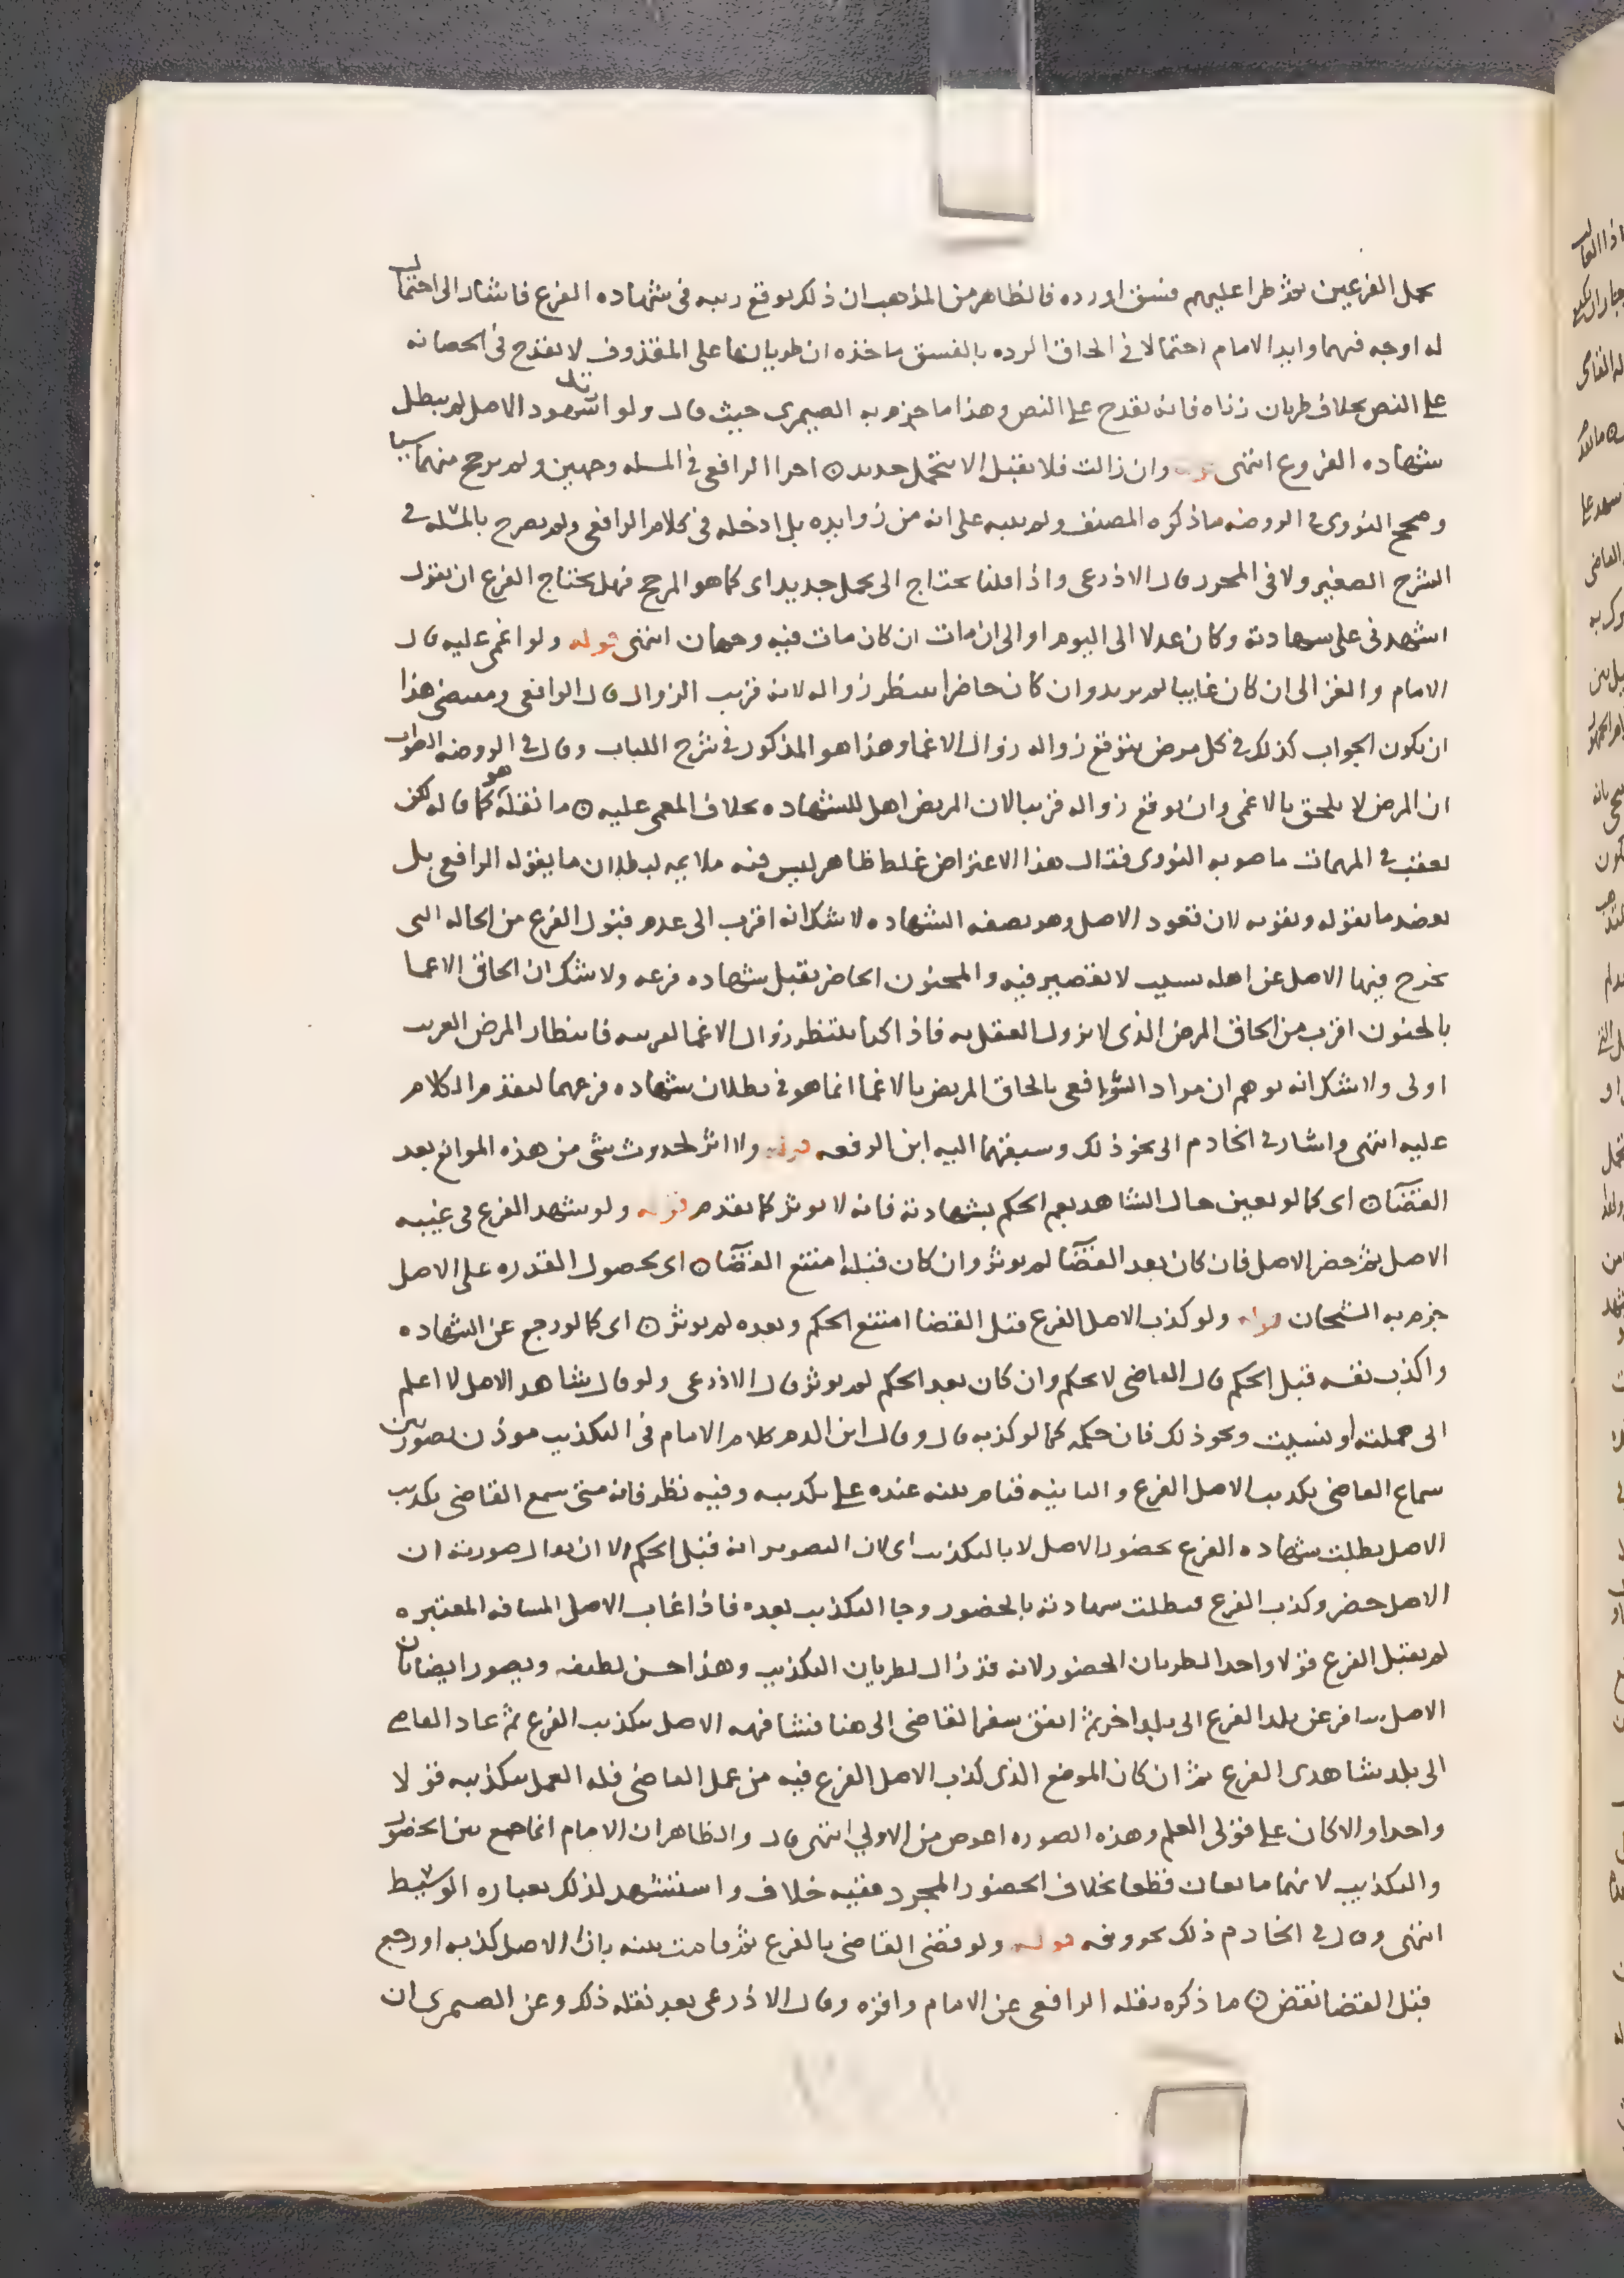 تحمل الفرعين ثم طرا عليهم فسق او رده فالظاهر من المذهب ان ذلك يوقع ريبه في شهاده الفرع فاشار الى احتمال
له اوجه فيهما وابدا الامام احتمالا في الحاق الرده بالفسق ماخذه ان طريانها على المقذوف لا يقدح في الحصانه
على النص بخلاف طريان زناه فانه يقدح على النص وهذا ما جزم به الصيمري حيث قال ولو ارتد شهود الاصل لم يبطل
شهاده الفروع انتهى قوله وان زالت فلا يقبل الا بتحمل جديد ۞ اجرا الرافعي في المسله وجهين ولم يرجح منهما شيا
وصحح النووي في الروضه ما ذكره المصنف ولم ينبه على انه من زوايده بل ادخله في كلام الرافعي ولم يصرح بالمسله في
الشرح الصغير ولا في المحرر قال الاذرعي واذا قلنا يحتاج الى تحمل جديد اي كما هو المرجح فهل يحتاج الفرع ان يقول
اشهدني على شهادته وكان عدلا الى اليوم او الى ان مات ان كان مات فيه وجهان انتهى قوله ولو اغمي عليه قال
الامام والغزالي ان كان غايبا لم يوثر وان كان حاضرا ينتظر زواله لانه قريب الزوال قال الرافعي ومقتضى هذا
ان يكون الجواب كذلك في كل مرض يتوقع زواله زوال الاغما وهذا هو المذكور في شرح اللباب وقال في الروضه الصواب
ان المرض لا يلحق بالاغمى وان توقع زواله قريبا لان المريض اهل للشهاده بخلاف المغمى عليه ۞ ما نقله هو كما قاله لكن
تعقب في المهمات ما صوبه النووي فقال هذا الاعتراض غلط ظاهر ليس فيه ملايمه لبطلان ما يقوله الرافعي بل
يعضد ما يقوله ويقويه لان قعود الاصل وهو بصفه الشهاده لا شك انه اقرب الى عدم قبول الفرع من الحاله التي
يخرج فيها الاصل عن اهله بسبب لا تقصير فيه والمجنون الحاضر يقبل شهاده فرعه ولا شك ان الحاق الاغما
بالجنون اقرب من الحاق المرض الذي لا يزول العقل به فاذا كنا ننتظر زوال الاغما لقربه فانتظار المرض القريب
اولى ولا شك انه توهم ان مراد الرافعي بالحاق المريض بالاغما انما هو في بطلان شهاده فرعهما لتقدم الكلام
عليه انتهى واشار في الخادم الى نحو ذلك وسبقهما اليه ابن الرفعه قوله ولا اثر لحدوث شي من هذه الموانع بعد
القضا ۞ اي كما لو تغير حال الشاهد بعد الحكم بشهادته فانه لا يوثر كما تقدم قوله ولو شهد الفرع في غيبه
الاصل ثم حضر الاصل فان كان بعد القضا لم يوثر وان كان قبله امتنع القضا ۞ اي لحصول القدره على الاصل
جزم به الشيخان قوله ولو كذب الاصل الفرع قبل القضا امتنع الحكم وبعده لم يوثر ۞ اي كما لو رجع عن الشهاده
واكذب نفسه قبل الحكم قال القاضي لا يحكم وان كان بعد الحكم لم يوثر قال الاذرعي ولو قال شاهد الاصل لا اعلم
اني حملته او نسيت ونحو ذلك فان حكمه كما لو كذبه قال وقال ابن الدم كلام الامام في التكذيب موذن بصورتين
سماع القاضي تكذيب الاصل الفرع والثانيه قيام بينه عنده على تكذيبه وفيه نظر فانه متى سمع القاضي تكذيب
الاصل بطلت شهاده الفرع بحضور الاصل لا بالتكذيب اي لان التصوير انه قبل الحكم الا ان يقال صورته ان
الاصل حضر وكذب الفرع فبطلت شهادته بالحضور وجا التكذيب بعده فاذا غاب الاصل المسافه المعتبره
لم يقبل الفرع قولا واحدا لطريان الحضور لانه قد زال لطريان التكذيب وهذا حسن لطيف ويصور ايضا بان
الاصل سافر عن بلد الفرع الى بلد اخر ثم اتفق سفر القاضي الى هنا فشافهه الاصل بتكذيب الفرع ثم عاد القاضي
الى بلد شاهدي الفرع ثم ان كان الموضع الذي كذب الاصل الفرع فيه من عمل القاضي فله العمل بتكذيبه قولا
واحدا والا كان على قولي العلم وهذه الصوره اغوص من الاولى انتهى قال والظاهر ان الامام انما جمع بين الحضور
والتكذيب لانهما مانعان قطعا بخلاف الحضور المجرد ففيه خلاف واستشهد لذلك بعباره الوسيط
انتهى وقال في الخادم ذلك بحروفه قوله ولو قضى القاضي بالفرع ثم قامت بينه بان الاصل كذبه او رجع
قبل القضا نقض ۞ ما ذكره نقله الرافعي عن الامام واقره وقال الاذرعي بعد نقله ذلك وعن الصيمري ان